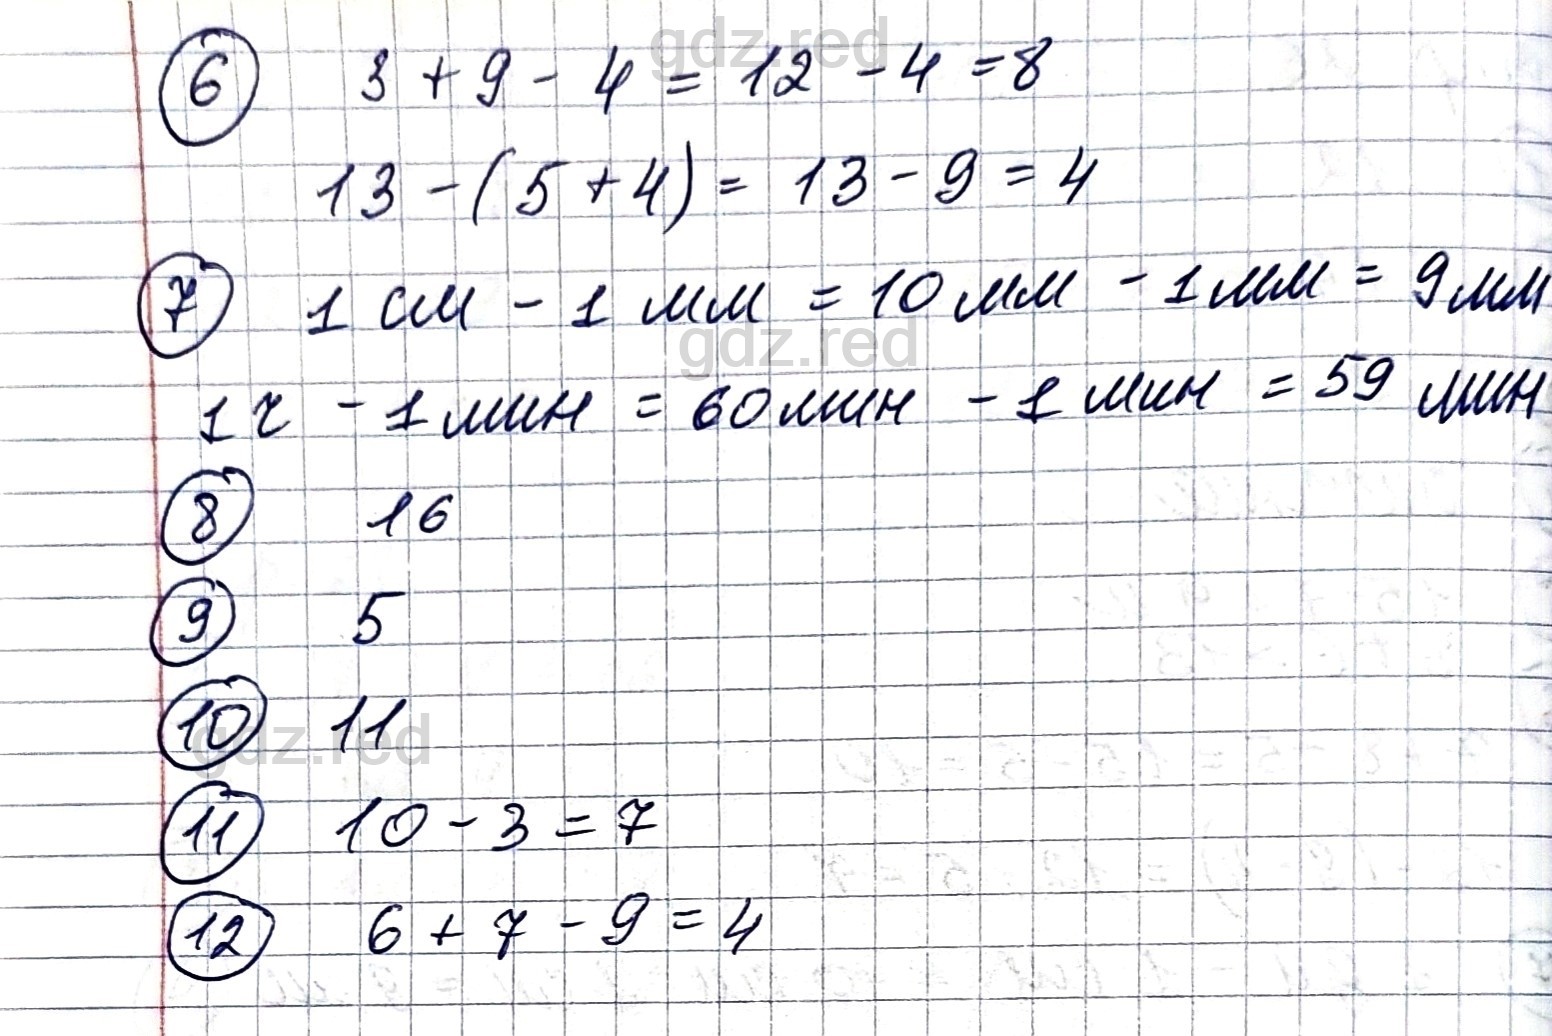 gdz.red
6 3 + 9 - 4 = 12 - 4 = 8
13 - (5 + 4) = 13 - 9 = 4
7 1 см - 1 мм = 10 мм - 1 мм = 9 мм
gdz.red
1 ч - 1 мин = 60 мин - 1 мин = 59 мин
8 16
9 5
10 11
gdz.red
11 10 - 3 = 7
12 6 + 7 - 9 = 4